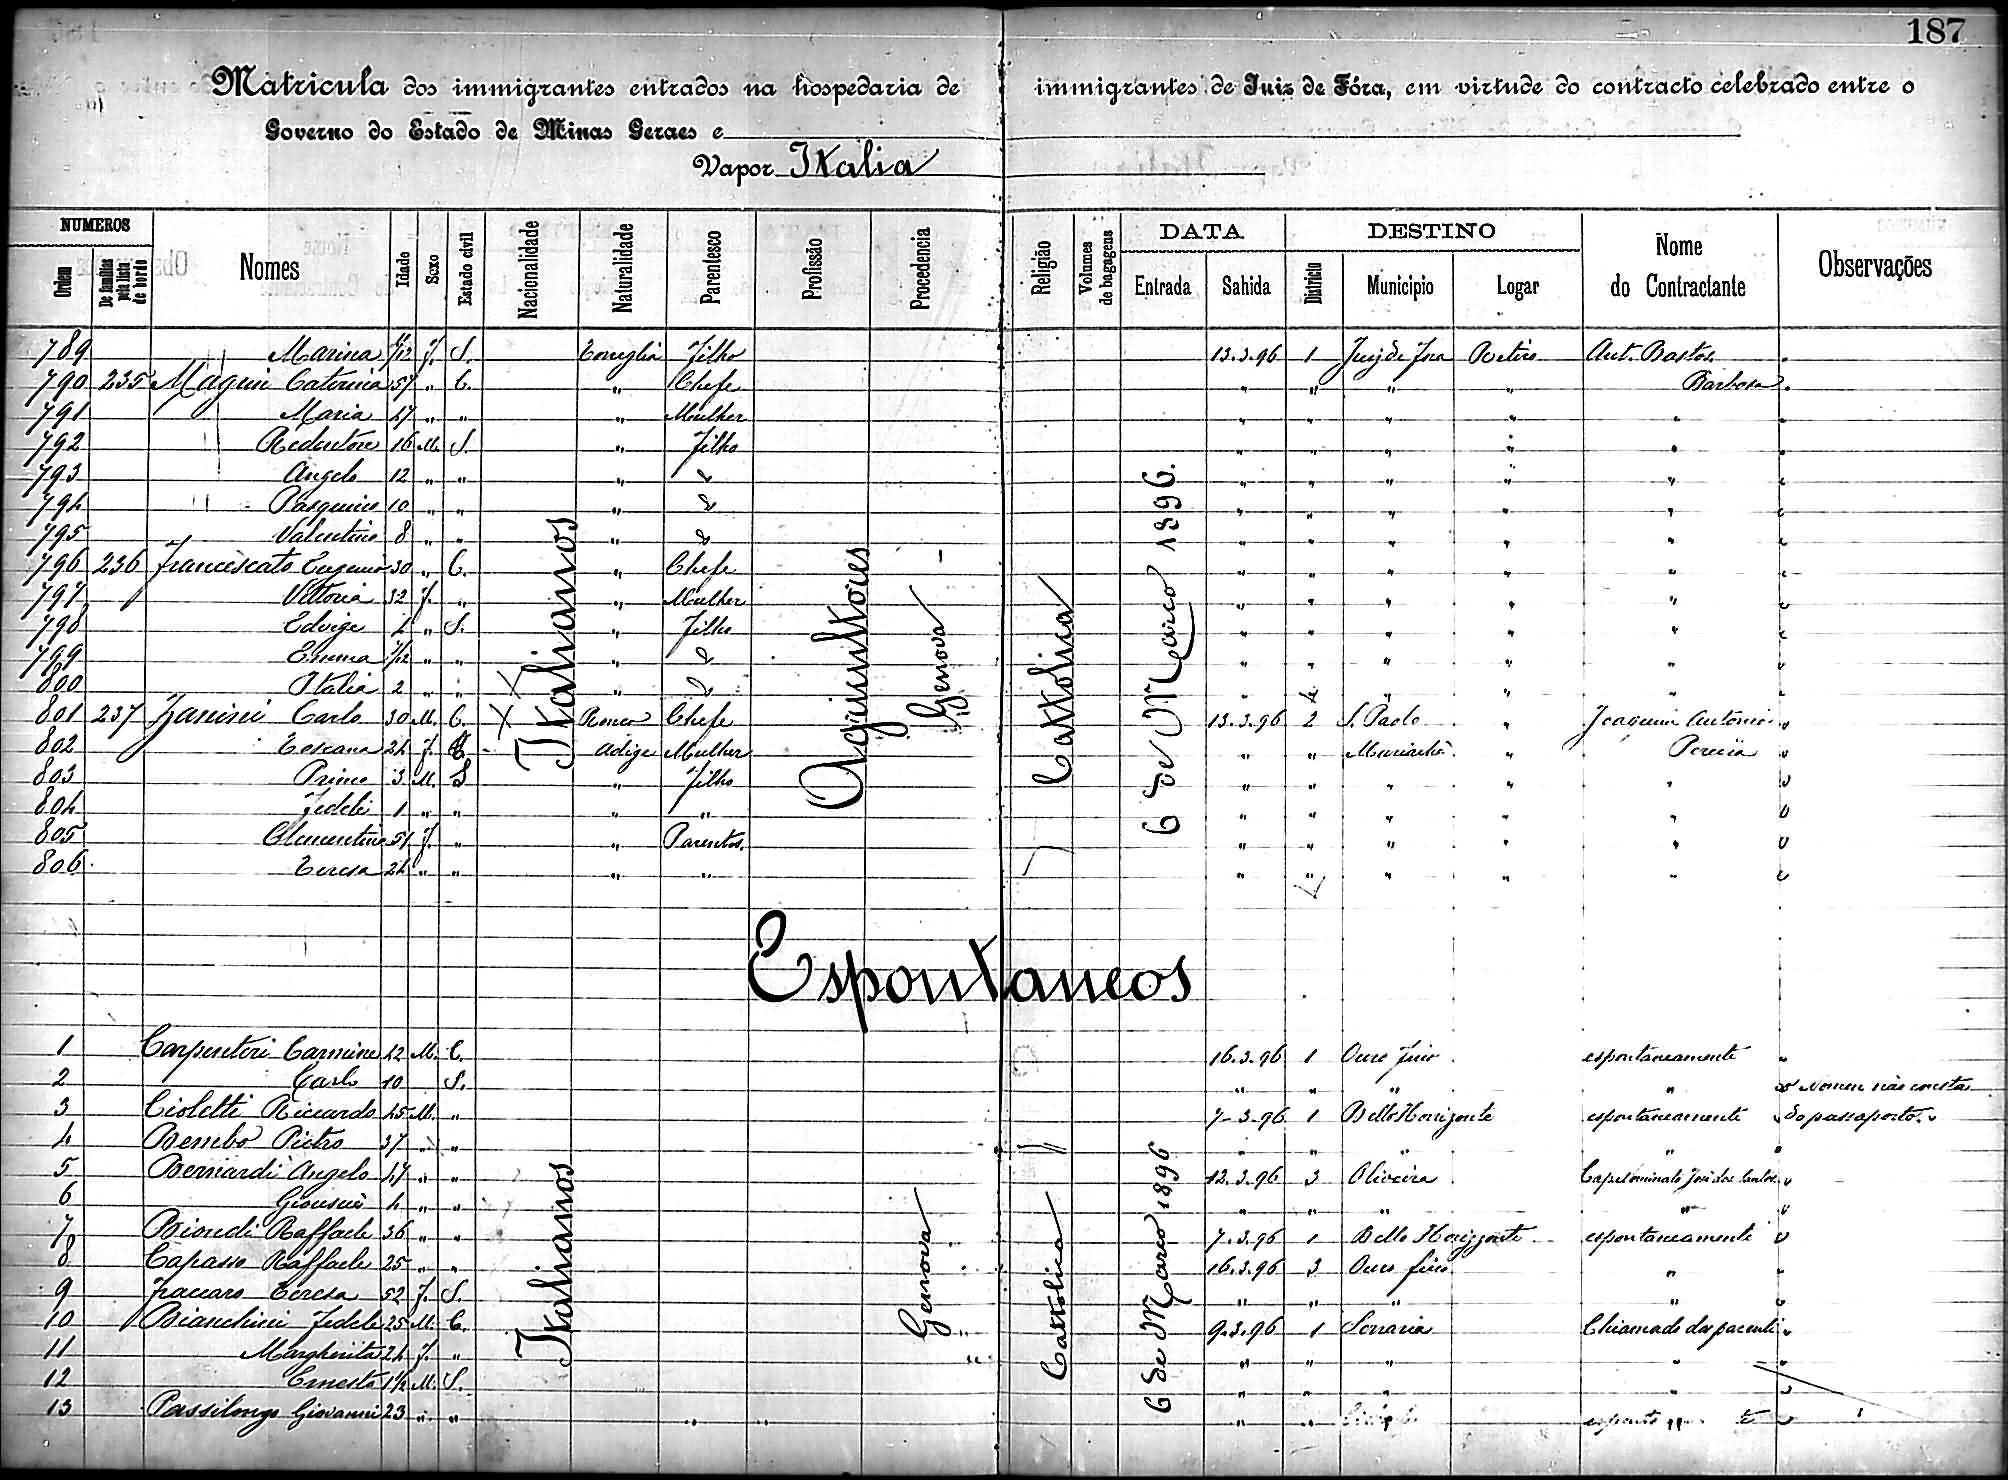 187
Matricula dos immigrantes entrados na hospedaria de immigrantes de Juiz de Fóra, em virtude do contracto celebrado entre o
Governo do Estado de Minas Geraes e
Vapor Italia
NUMEROS DATA DESTINO
Ordem De familias pela lista de bordo Nomes Idade Sexo Estado civil Nacionalidade Naturalidade Parentesco Profissão Procedencia Religião Volumes de bagagens Entrada Sahida Districto Municipio Logar Nome do Contractante Observações
789 Marina F. S. Filho 13.3.96 1 Juiz de Fora Retiro Ant. Bastos
790 235 Caterina 57 " C. " Chefe " " " " Barbosa
791 Maria 47 " " " Mulher " " " " "
792 Redentore 16 M. S. " Filho " " " " "
793 Angelo 12 " " " " " " " "
794 10 " " " " " " " "
795 Valentino 8 " " " " " " " "
796 236 Francescato Eugenio 30 " C. " Chefe " " " " "
797 Vittoria 32 F. " " Mulher " " " " "
798 Edvige 4 " S. " Filho " " " " "
799 Emma " " " " " " " "
800 Italia 2 " " " " " " "
801 237 Zanini Carlo 30 M. C. Ronco Chefe 13.3.96 2 S. Paolo " Joaquim Antonio
802 Toscana 24 F. C. Adige Mulher " " Muriahé " Pereira
803 Primo 3 M. S " Filho " " " " "
804 Fedele 1 " " " " " " " " "
805 Clementina 51 F. " " Parentes. " " " " "
806 Teresa 24 " " " " " " " " "
Italianos
Agricultores
Genova
Cattolica
6 de Março 1896.
Espontaneos
1 Carpenteri Carmine 42 M. C. 16.3.96 1 Ouro fino espontaneamente
2 Carlo 10 S. " " " " Nomen não consta
3 Cioletti Riccardo 45 M. " 7-3.96 1 Bello Horizonte espontaneamente do passaporto.
4 Bembo Pietro 37 " " " " " "
5 Bernardi Angelo 47 " " 12.3.96 3 Oliveira
6 Giosuè 4 " " " " " "
7 Biondi Raffaele 36 " " 7.3.96 1 Bello Horizzonte espontaneamente
8 Capasso Raffaele 25 " " 16.3.96 3 Ouro fino "
9 Fraccaro Teresa 52 F. S. " " " "
10 Bianchini Fedele 25 M. C. 9.3.96 1 Serraria Chiamado das parenti
11 Margherita 24 F. " " " " "
12 Ernesto 1½ M. S. " " " "
13 Passilongo Giovanni 23 " " " " " "
Italianos
Genova
Cattolica
6 de Março 1896